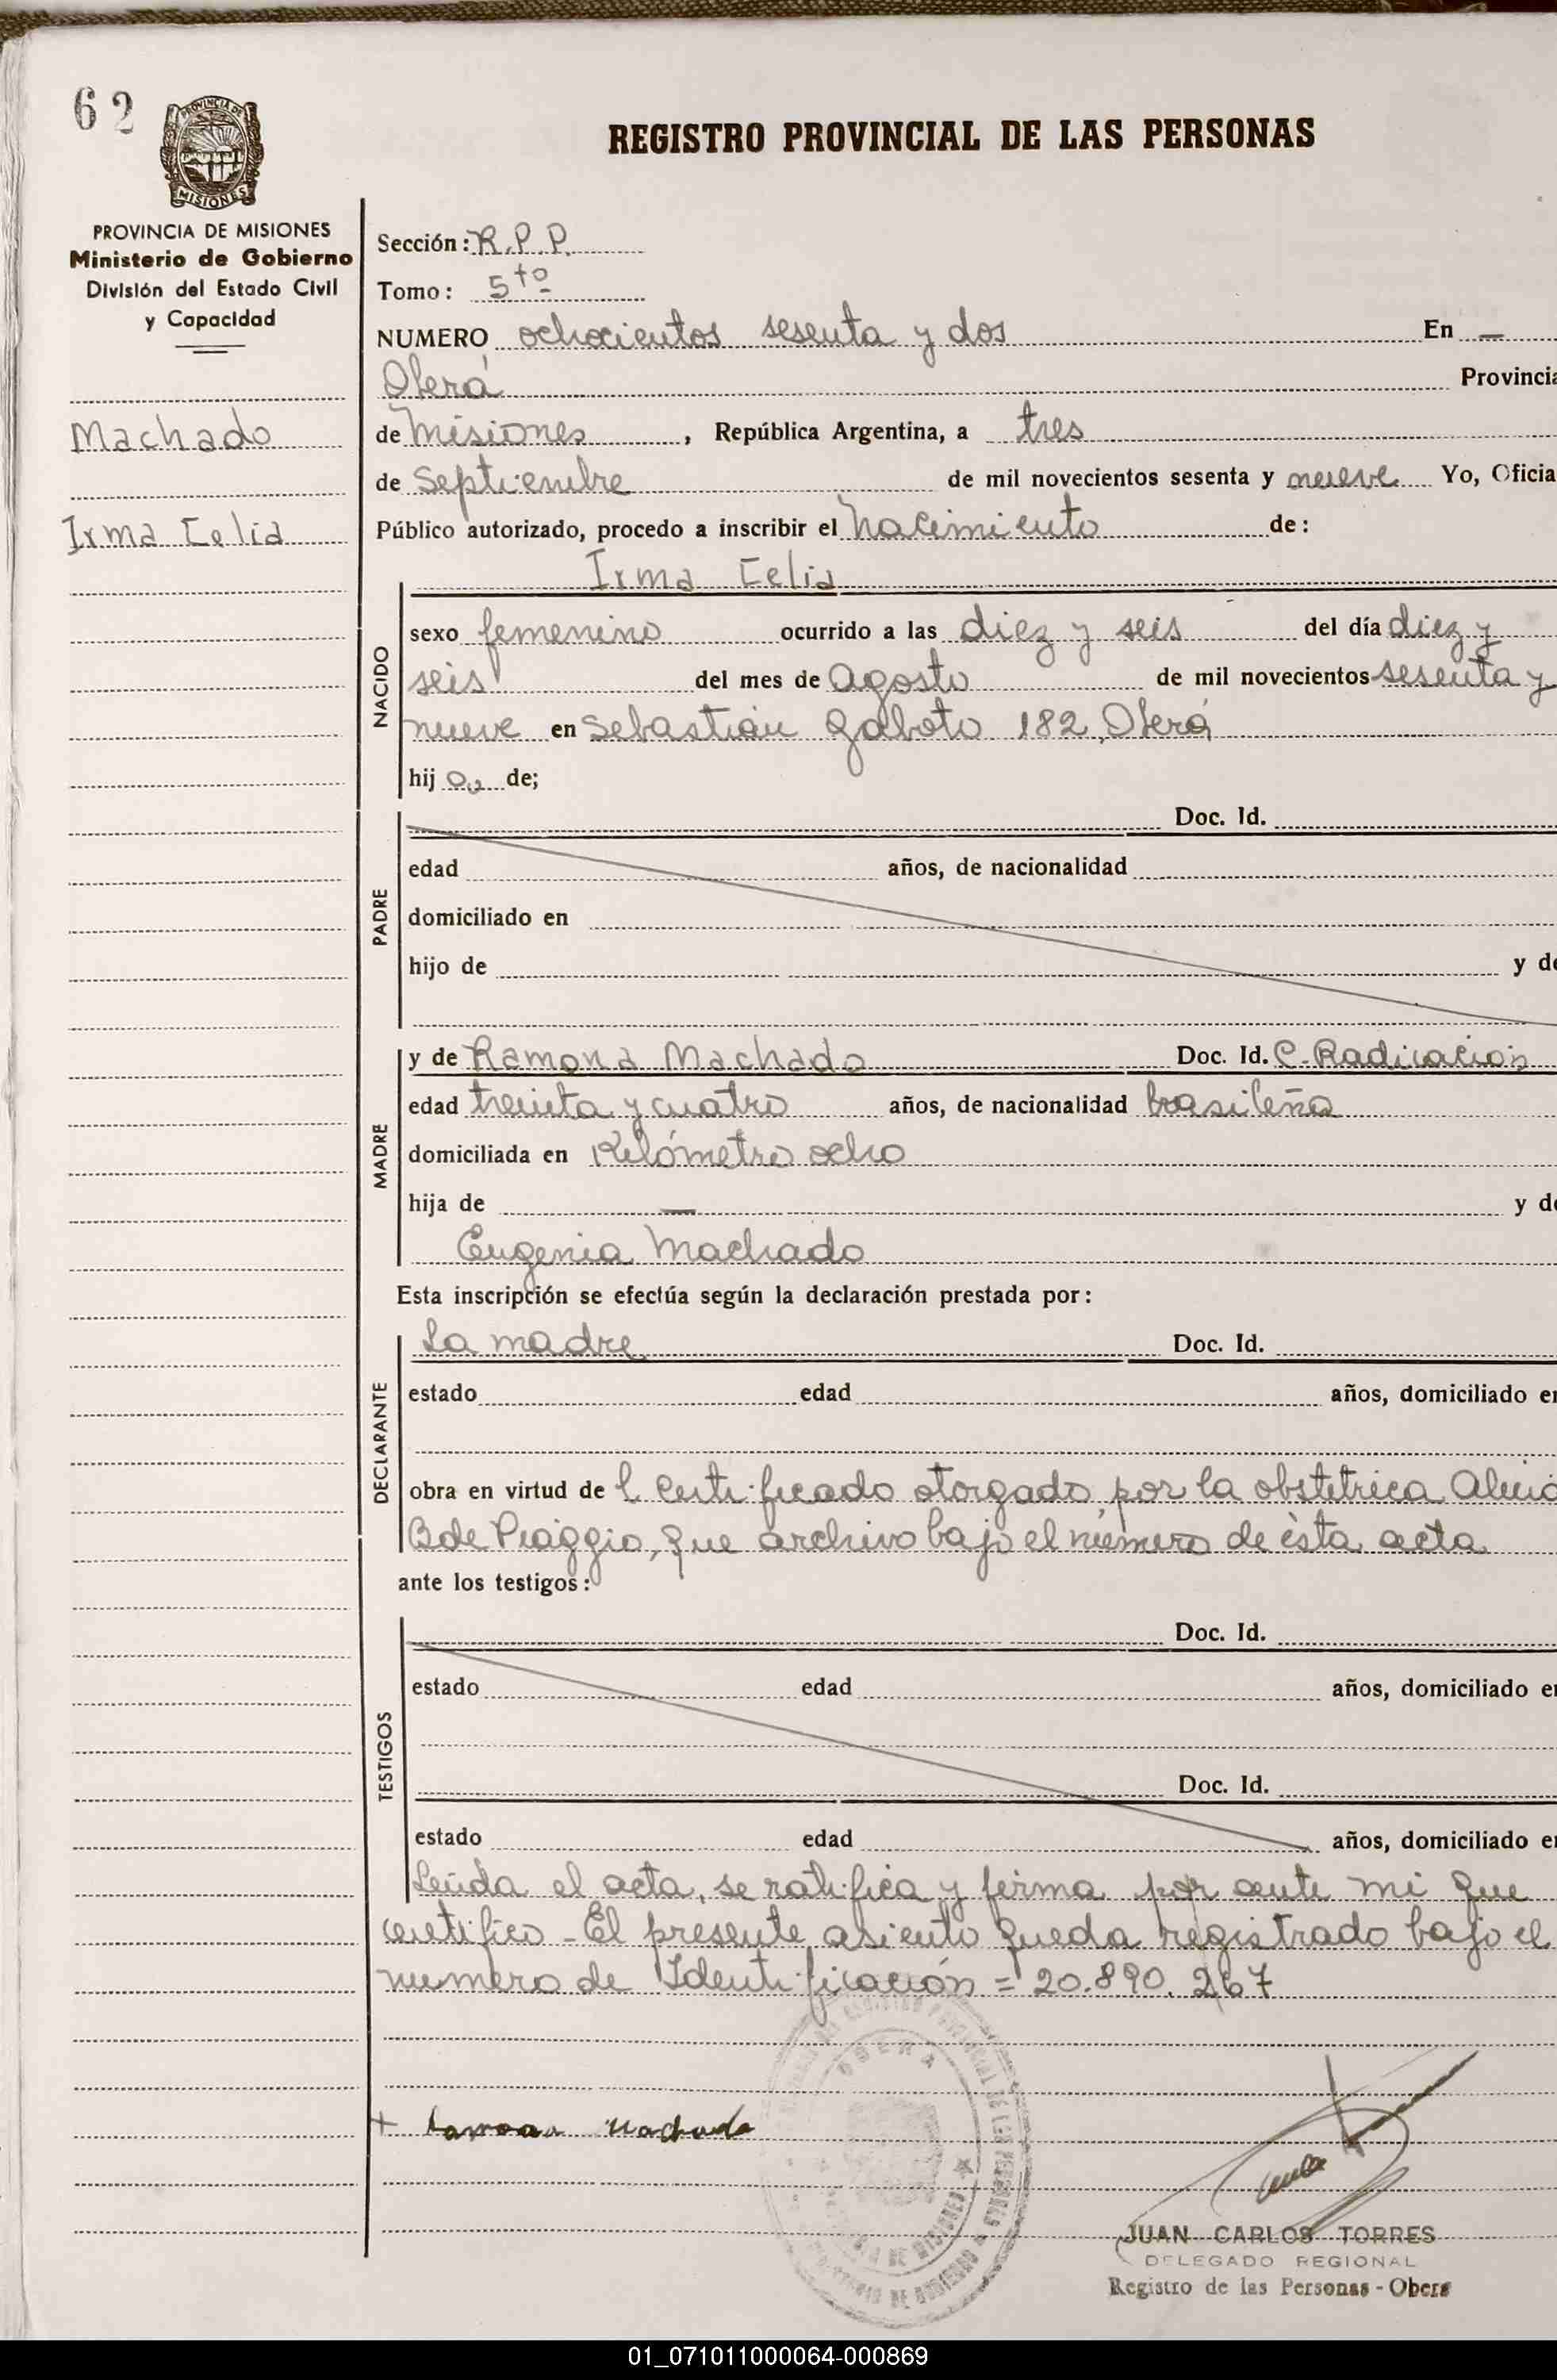 62
REGISTRO PROVINCIAL DE LAS PERSONAS
PROVINCIA DE MISIONES
Ministerio de Gobierno
División del Estado Civil
y Capacidad
Machado
Irma Celia
Sección: R.P.P.
Tomo: 5to
NUMERO ochocientos sesenta y dos En —
Oberá Provincia
de Misiones, República Argentina, a tres
de Septiembre de mil novecientos sesenta y nueve Yo, Oficia
Público autorizado, procedo a inscribir el nacimiento de:
Irma Celia
NACIDO
sexo femenino ocurrido a las diez y seis del día diez y
seis del mes de Agosto de mil novecientos sesenta y
nueve en Sebastián Gaboto 182, Oberá
hij a. de;
PADRE
Doc. Id.
edad años, de nacionalidad
domiciliado en
hijo de y de
MADRE
y de Ramona Machado Doc. Id. C. Radicación
edad treinta y cuatro años, de nacionalidad brasileña
domiciliada en Kilómetro ocho
hija de — y de
Eugenia Machado
Esta inscripción se efectúa según la declaración prestada por:
DECLARANTE
La madre Doc. Id.
estado edad años, domiciliado en
obra en virtud de l Certificado otorgado por la obstetrica
B de Piaggio, que archivo bajo el número de ésta acta
ante los testigos:
TESTIGOS
Doc. Id.
estado edad años, domiciliado en
Doc. Id.
estado edad años, domiciliado en
Leída el acta, se ratifica y firma por ante mi que
certifico - El presente asiento queda registrado bajo el
numero de Identificación = 20.890.267
OBERA
+ Ramona Machado
JUAN CARLOS TORRES
DELEGADO REGIONAL
Registro de las Personas - Obera
01_071011000064-000869